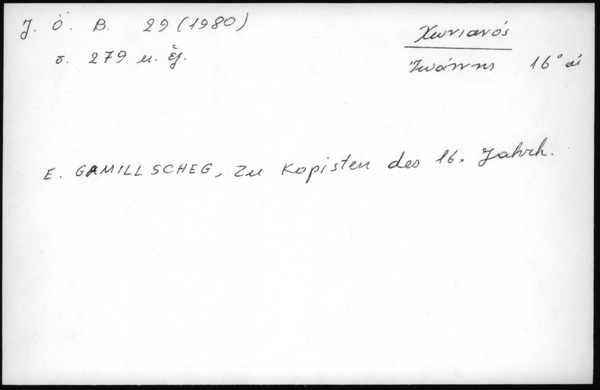 J. Ö. B. 29 (1980)
σ. 279 κ. ἑξ.
Χωνιανός
Ἰωάννης 16° αἰ
E. GAMILLSCHEG, Zu Kopisten des 16. Jahrh.